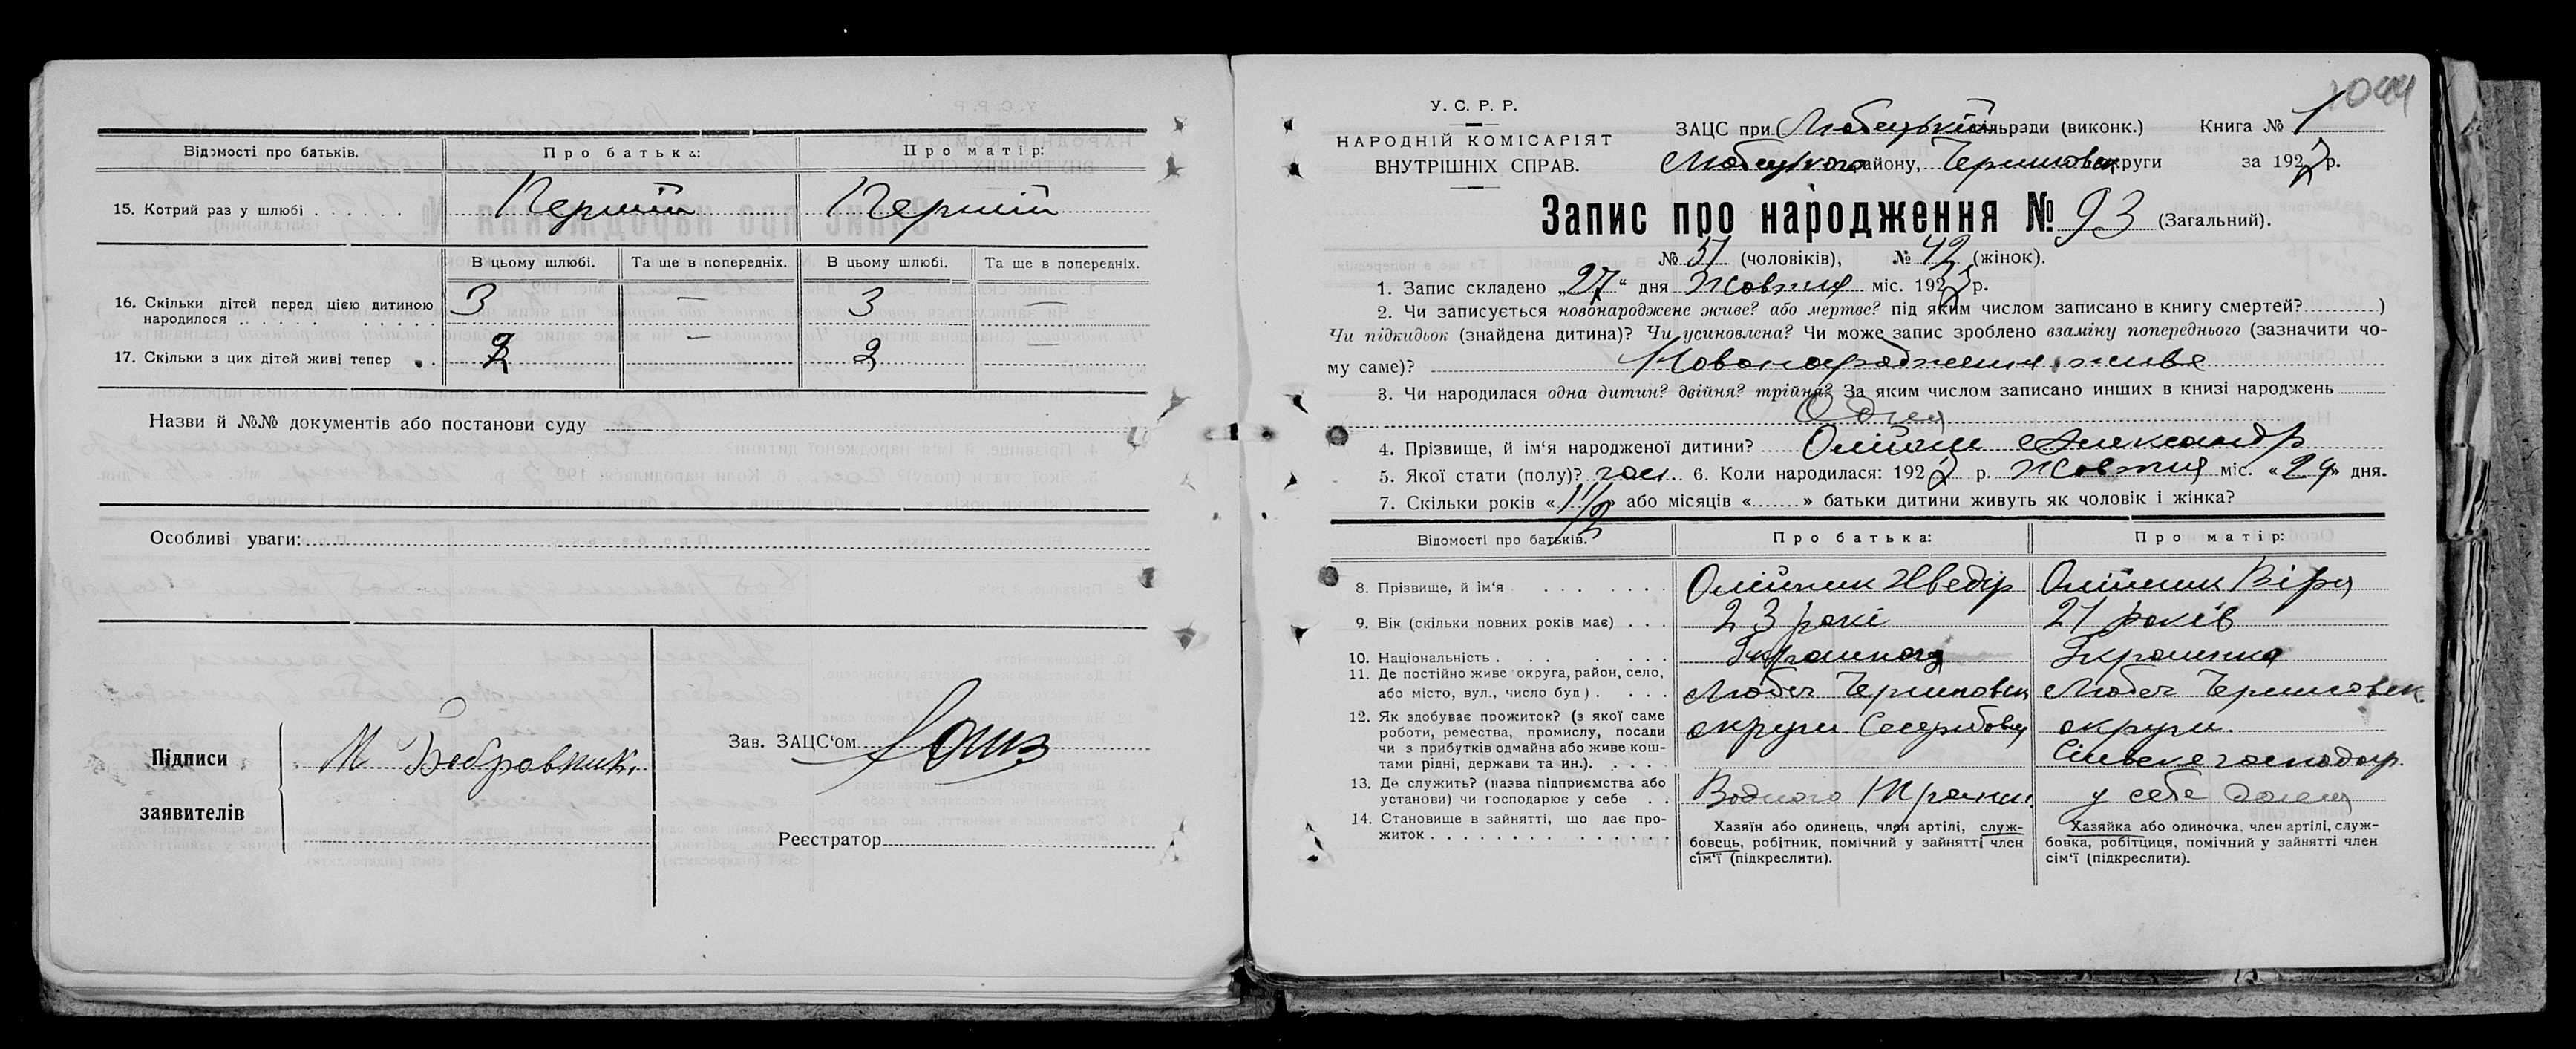 Відомості про батьків. Про батька: Про матір:
15. Котрий раз у шлюбі . . . . . . Перший Перший
В цьому шлюбі. Та ще в попередніх. В цьому шлюбі. Та ще в попередніх.
16. Скільки дітей перед цією дитиною народилося . . . . . 3 — 3 —
17. Скільки з цих дітей живі тепер . . 2 — 2 —
Назви й №№ документів або постанови суду
Особливі уваги:
Підписи заявителів
М Бобровник.
Зав. ЗАЦС'ом
Реєстратор
1044
У. С. Р. Р.
НАРОДНІЙ КОМІСАРІЯТ
ВНУТРІШНІХ СПРАВ.
ЗАЦС при Любецькій сільради (виконк.) Книга № 1
Любецького району, Черниговськ округи за 1927 р.
Запис про народження № 93 (Загальний).
№ 51 (чоловіків), № 42 (жінок).
1. Запис складено „27“ дня Жовтня міс. 1927 р.
2. Чи записується новонароджене живе? або мертве? під яким числом записано в книгу смертей?..........)
Чи підкидьок (знайдена дитина)? Чи усиновлена? Чи може запис зроблено взаміну попереднього (зазначити чо-
му саме)? Новонародження живе
3. Чи народилася одна дитин? двійня? трійня? За яким числом записано инших в книзі народжень
Одна
4. Прізвище, й ім'я народженої дитини? Олійник Александр
5. Якої стати (полу)? чол. 6. Коли народилася: 1927 р. Жовтня міс. «24» дня.
7. Скільки років «1 1/2» або місяців «.......» батьки дитини живуть як чоловік і жінка?
Відомості про батьків. Про батька: Про матір:
8. Прізвище, й ім'я . . . . . . . Олійник Хведір Олійник Віра
9. Вік (скільки повних років має) . . . 23 рокі 21 років
10. Національність . . . . . . . Українець Українка
11. Де постійно живе округа, район, село,
або місто, вул., число буд) . . . . Любеч Черниговськ Любеч Черниговськ.
12. Як здобуває прожиток? (з якої саме
роботи, ремества, промислу, посади
чи з прибутків одмайна або живе кош-
тами рідні, держави та ин.). . . . . округи округи.
Сільське господар.
13. Де служить? (назва підприємства або
установи) чи господарює у себе . . Водного Транси. у себе дома
14. Становище в зайнятті, що дає про-
житок . . . . . . . . . . . . . .
Хазяїн або одинець, член артілі, служ-
бовець, робітник, помічний у зайнятті член
сім'ї (підкреслити).
Хазяйка або одиночка, член артілі, служ-
бовка, робітниця, помічний у зайнятті член
сім'ї (підкреслити).